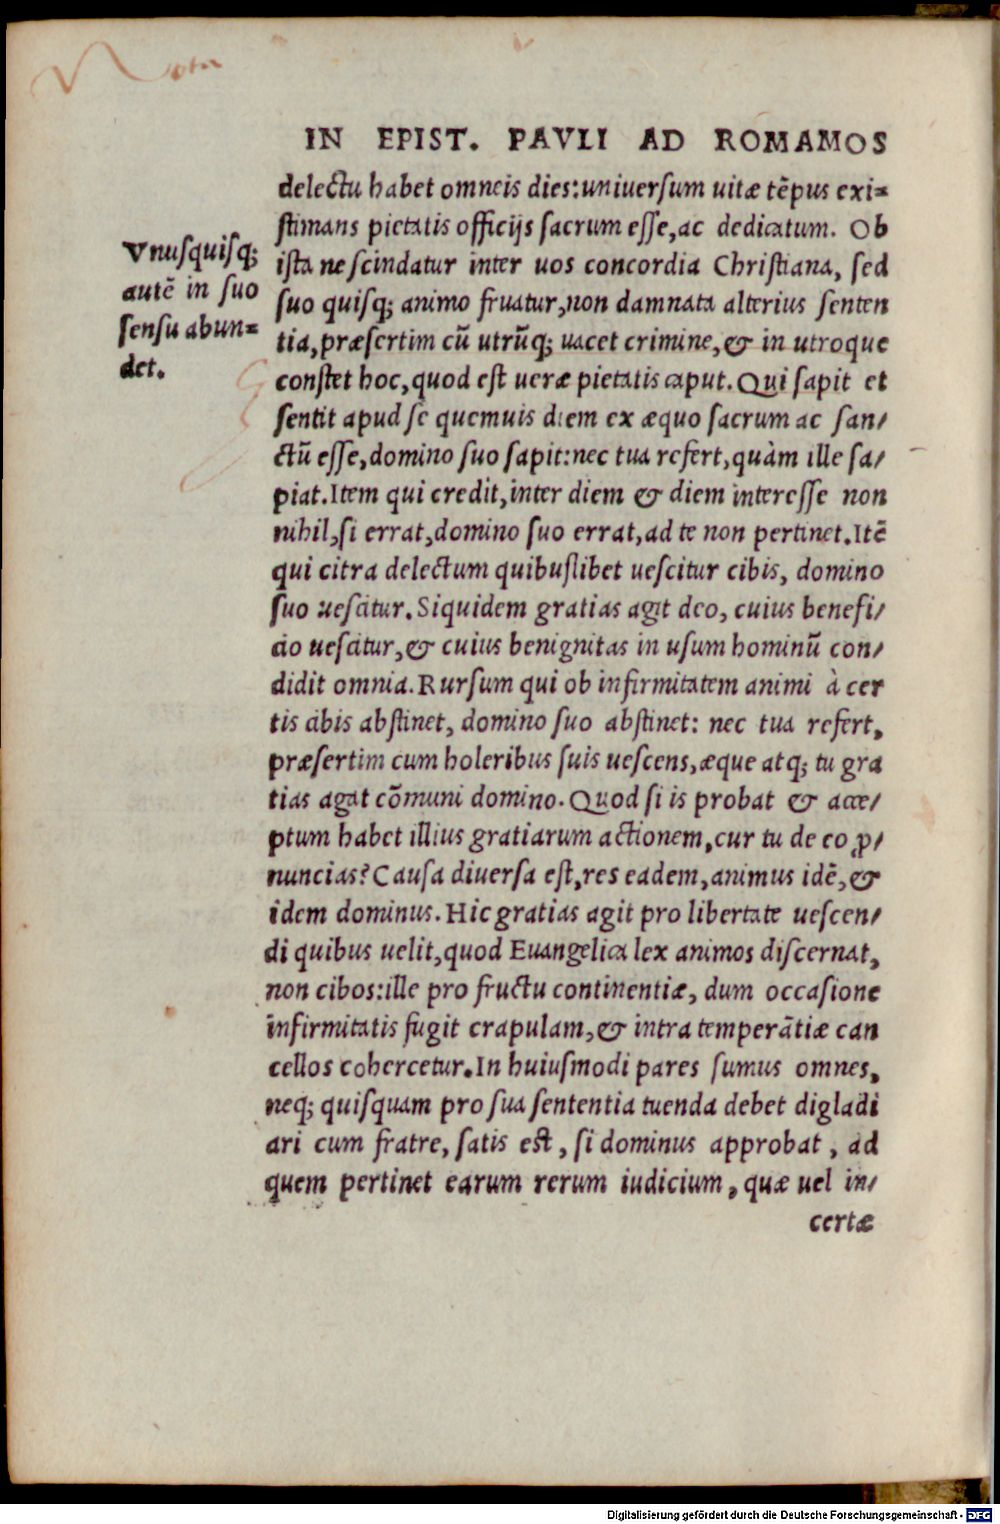 Nota
IN EPIST. PAVLI AD ROMAMOS
delectu habet omneis dies:uniuersum uitæ tẽpus exi=
stimans pietatis officijs sacrum esse,ac dedicatum. Ob
ista ne scindatur inter uos concordia Christiana, sed
suo quisq; animo fruatur,non damnata alterius senten
tia,præsertim cũ utrũq; uacet crimine,& in utroque
constet hoc,quod est ueræ pietatis caput.Qui sapit et
sentit apud se quemuis diem ex æquo sacrum ac san/
ctũ esse,domino suo sapit:nec tua refert,quàm ille sa/
piat.Item qui credit,inter diem & diem interesse non
nihil,si errat,domino suo errat,ad te non pertinet.Itẽ
qui citra delectum quibuslibet uescitur cibis, domino
suo uescitur.Siquidem gratias agit deo, cuius benefi/
cio uescitur,& cuius benignitas in usum hominũ con/
didit omnia.Rursum qui ob infirmitatem animi à cer
tis cibis abstinet, domino suo abstinet: nec tua refert,
præsertim cum holeribus suis uescens,æque atq; tu gra
tias agat cõmuni domino.Quod si is probat & acce/
ptum habet illius gratiarum actionem,cur tu de eo ꝓ/
nuncias?Causa diuersa est,res eadem,animus idẽ,&
idem dominus.Hic gratias agit pro libertate uescen/
di quibus uelit,quod Euangelica lex animos discernat,
non cibos:ille pro fructu continentiæ, dum occasione
infirmitatis fugit crapulam,& intra temperãtiæ can
cellos cohercetur.In huiusmodi pares sumus omnes,
neq; quisquam pro sua sententia tuenda debet digladi
ari cum fratre, satis est, si dominus approbat, ad
quem pertinet earum rerum iudicium, quæ uel in/
certæ
Vnusquisq;
autẽ in suo
sensu abun=
det.
Digitalisierung gefördert durch die Deutsche Forschungsgemeinschaft - DFG